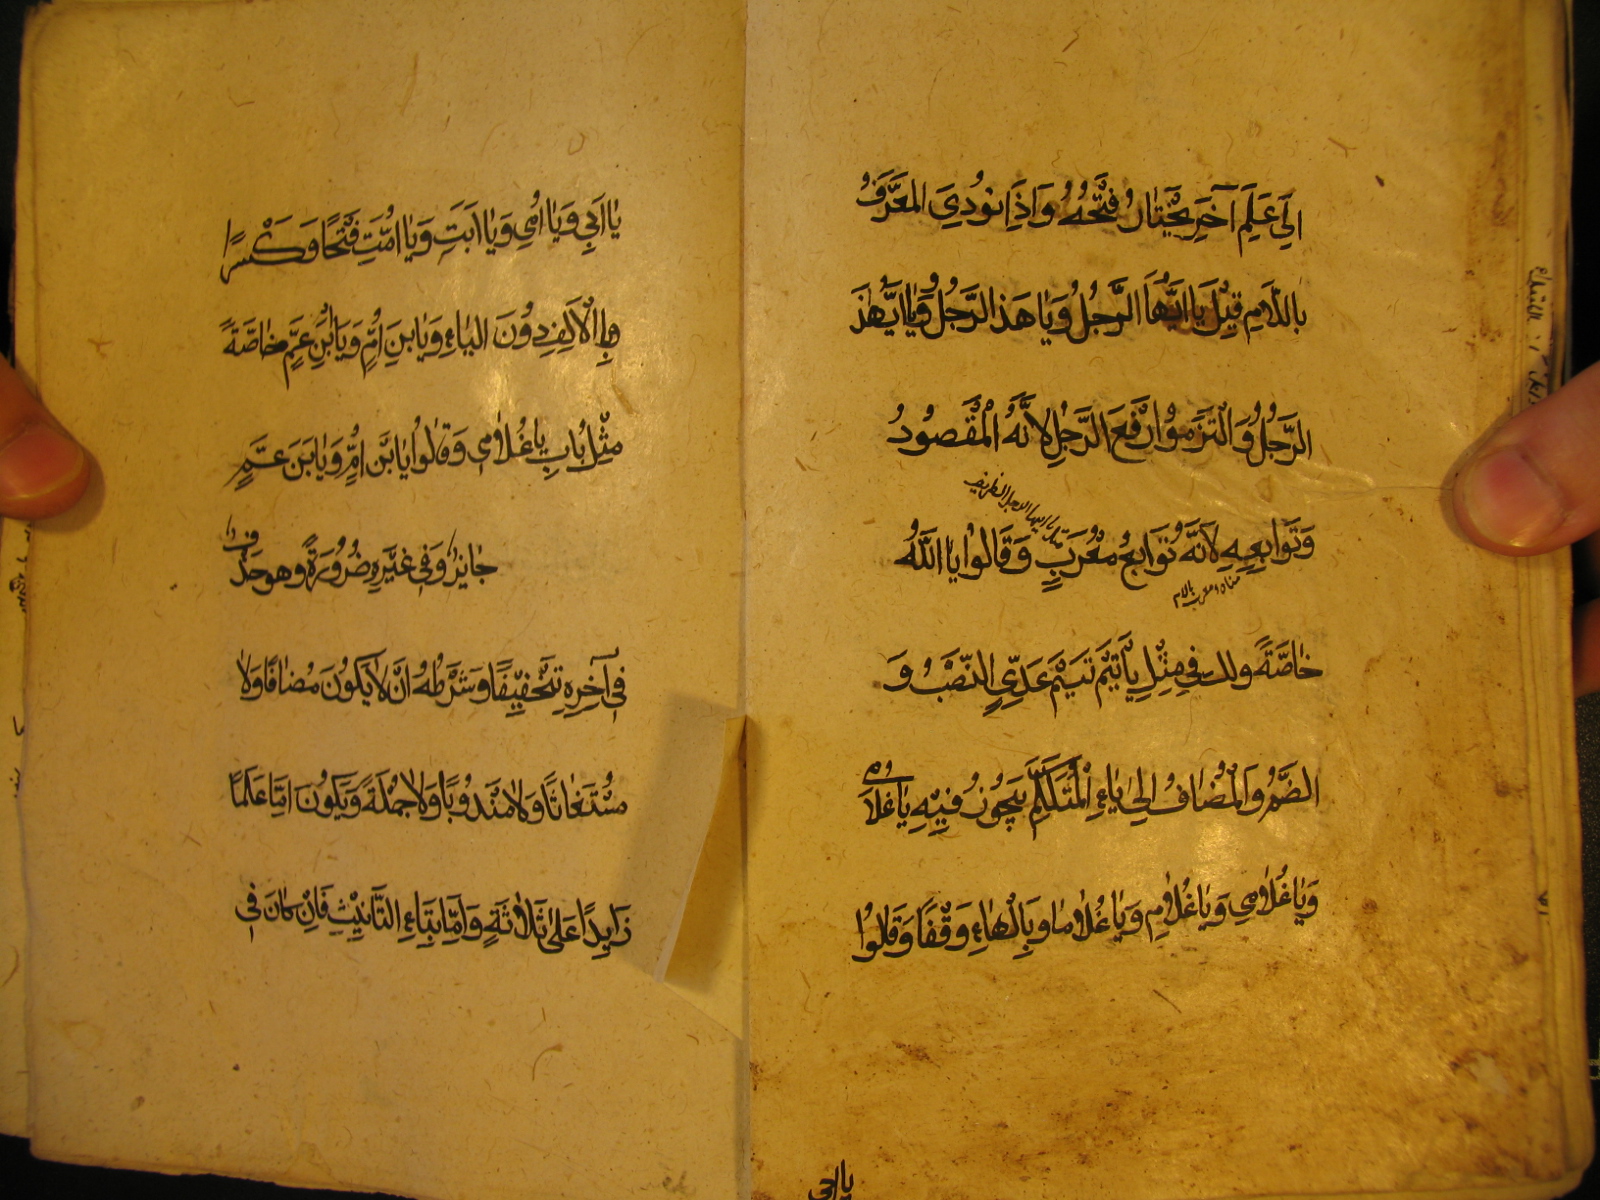 اِلى عَلَمٍ آخَرَ يُخْتَارُ فَتْحُهُ وَاِذَا نُودِيَ المعَرَّفُ
بِاللَّامِ قِيْلَ يَا اَيُّهَا الرَّجُلُ وَيَا هَذَ الرَّجُلُ وَيَا اَيُّهذَ
الرَّجُلُ وَالْتَزَمُوْا رَفْعَ الرَّجُلِ لِاَنَّهُ الْمَقْصُودُ
وَتَوَابِعِهِ لِاَنَّهُ تَوَابِعُ مُعْرَبٍ وَقَالُوا يَا اَللّٰهُ
خَاصَّةً ولك فى مِثْلِ يَا تَيْمَ تَيْمَ عَدِيٍّ النَّصْبُ وَ
الضَّمُّ وَالْمُضَافُ اِلى يَاءِ الْمُتَكَلِّمِ يَجُوزُ فِيْهِ يَا غُلَامِى
وَيَا غُلَامِي وَيَا غُلَامِ وَيَا غُلَامَا وَبِالْهَاءِ وَقْفًا وَقَالُوا
يا ابى
يَا اَبِي وَيَا اُمِّي وَيَا اَبَتِ وَيَا اُمَّتِ فَتْحًا وَكَسْرًا
وَبِالْاَلِفِ دُونَ اليَاءِ وَيَا بْنَ اُمِّ وَيَا بْنَ عَمِّ خَاصَّةً
مِثْلُ بَابِ يَا غُلَامِى وَقَالُوا يَا بْنَ اُمِّ وَيَا بْنَ عَمِّ
جَايزٌ وَفى غَيْرِهِ ضَرُورَةً وهو حَذْفٌ
فى آخِرِهِ تَخْفِيْفًا وَشَرْطُهُ اَنْ لَا يَكُونَ مُضَافًا وَلَا
مُسْتَغَاثًا وَلَا مَنْدُوبًا وَلَا جُمْلَةً وَيَكُونَ اِمَّا عَلَمًا
زَايِدًا عَلى ثَلَاثَةٍ وَاِمَّا بِتَاءِ التَّانِيْثِ فَاِنْ كَانَ فى